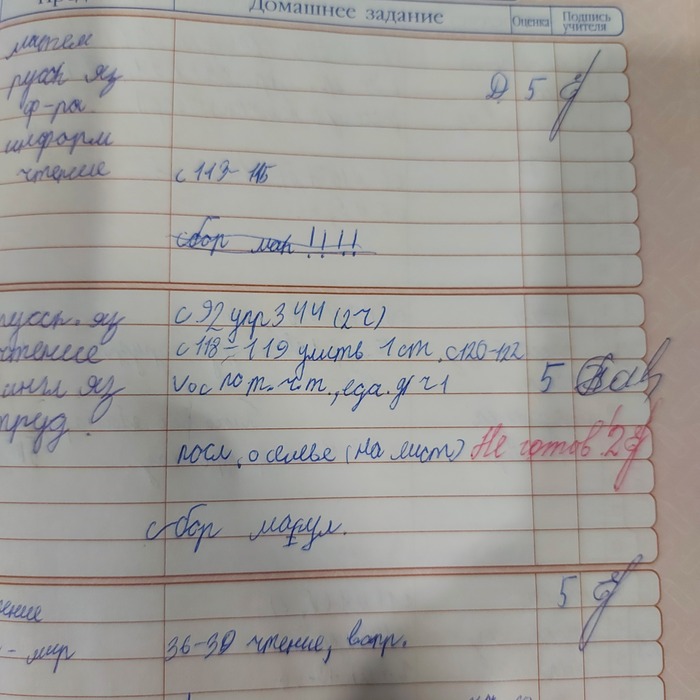 Домашнее задание Оценка Подпись учителя
матем
русск яз Д. 5
ф-ра
информ
чтение с 113-115
сбор мак !!!!
русск. яз с 92 упр 344 (2ч)
чтение с 118-119 учить 1 ст, с120-122
англ яз Voc еда. 5
труд.
посл, о семье (на лист) Не готов! 2
сбор макул.
ение 5
- мир 36-39 чтение, вопр.